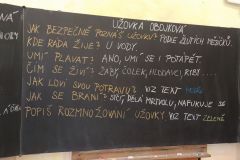 UŽOVKA OBOJKOVÁ
JAK BEZPEČNĚ POZNÁŠ UŽOVKU? PODLE ŽLUTÝCH MĚSÍČKŮ.
KDE RÁDA ŽIJE? U VODY.
UMÍ PLAVAT? ANO, UMÍ SE I POTÁPĚT.
ČÍM SE ŽIVÍ? ŽÁBY, ČOLEK, HLODAVCI, RYBY...
JAK LOVÍ SVOU POTRAVU? VIZ TEXT MODŘE
JAK SE BRÁNÍ? SYČÍ, DĚLÁ MRTVOLU, NAFUKUJE SE
POPIŠ ROZMNOŽOVÁNÍ UŽOVKY VIZ TEXT ZELENĚ